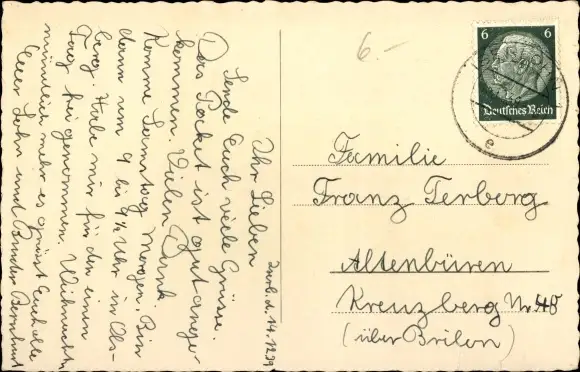 Ihr Lieben
Sende Euch viele Grüsse.
Das Packet ist gut ange-
kommen. Vielen Dank.
Komme Samstag Morgen. Bin
dann um 9 bis 9½ Uhr in Ols-
berg. Habe mir für den einen
Tag frei genommen. Weihnachten
mündlich mehr es grüsst Euch alle
Euer Sohn und Bruder Bernhard
d. 14.12.39
6.-
6 6
Deutsches Reich
e
Familie
Franz Terberg
Altenbüren
Kreuzberg Nr. 48
(über Brilon)